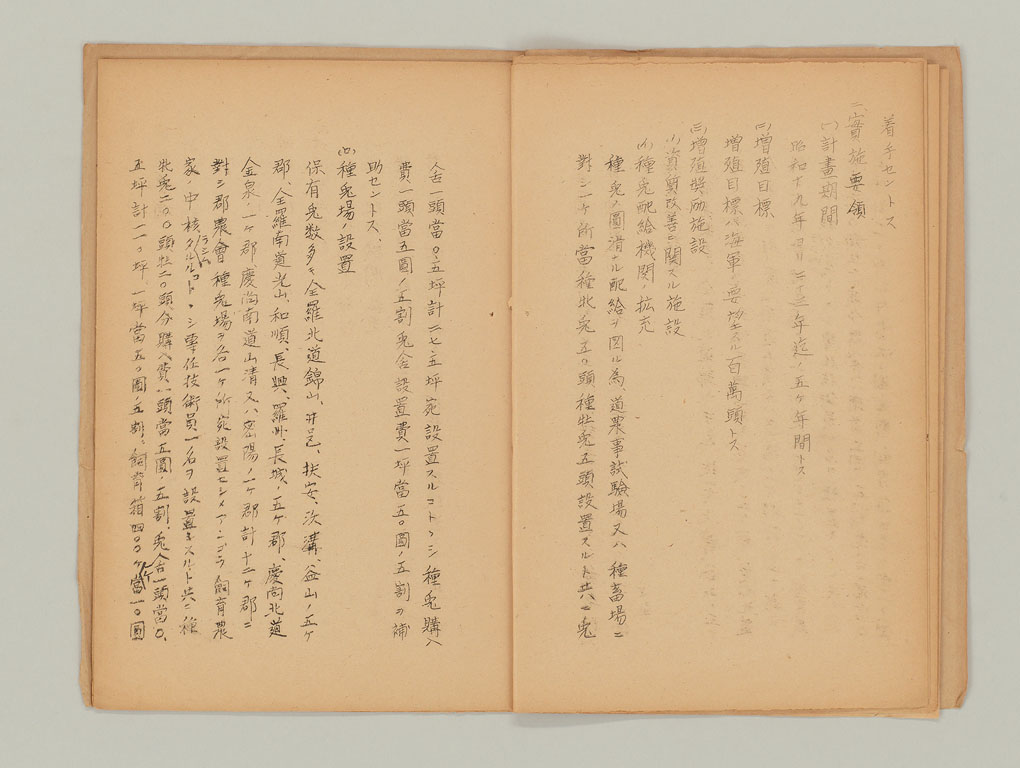 着手セントス
二、實施要領
(一)計畫期間
昭和十九年 月ヨリ二十三年迄ノ五ケ年間トス
(二)增殖目標
增殖目標ハ海軍ノ要望スル百萬頭トス
(三)增殖奬勵施設
(1)資質改善ニ關スル施設
(イ)種兎配給機關ノ拡充
種兎ノ圓滑ナル配給ヲ図ル為、道農事試驗場又ハ種畜場ニ
對シ一ケ所當種牝兎五〇頭種牡兎五頭設置スルト共ニ兎
舍一頭當〇.五坪計二七.五坪宛設置スルコトトシ種兎購入
費一頭當五圓ノ五割兎舍設置費一坪當五〇圓ノ五割ヲ補
助セントス、
(ロ)種兎場ノ設置
保有兎数多キ全羅北道錦山、井邑、扶安、沃溝、益山ノ五ケ
郡、全羅南道光山、和順、長興、羅州、長城ノ五ケ郡、慶尚北道
金泉ノ一ケ郡慶尚南道山清又ハ密陽ノ一ケ郡計十二ケ郡ニ
對シ郡農會種兎場ヲ各一ケ所宛設置セシメアンゴラ飼育農
家ノ中核タラシムルコトトシ專任技術員一名ヲ設置スルト共ニ種
牝兎二〇〇頭牡二〇頭分購入費一頭當五圓ノ五割、兎舍一頭當〇.
五坪計一一〇坪、一坪當五〇圓ノ五割。飼育箱四〇〇ケ一ケ當一〇圓